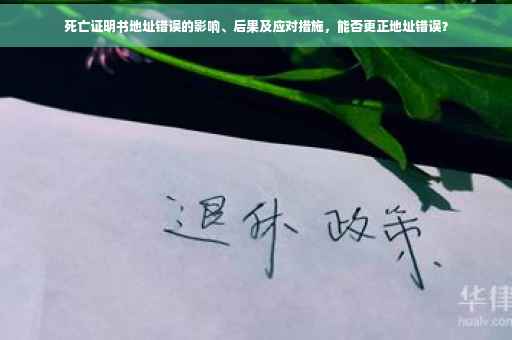 死亡证明书地址错误的影响、后果及应对措施，能否更正地址错误？
退休 政策
华律
hualv.com